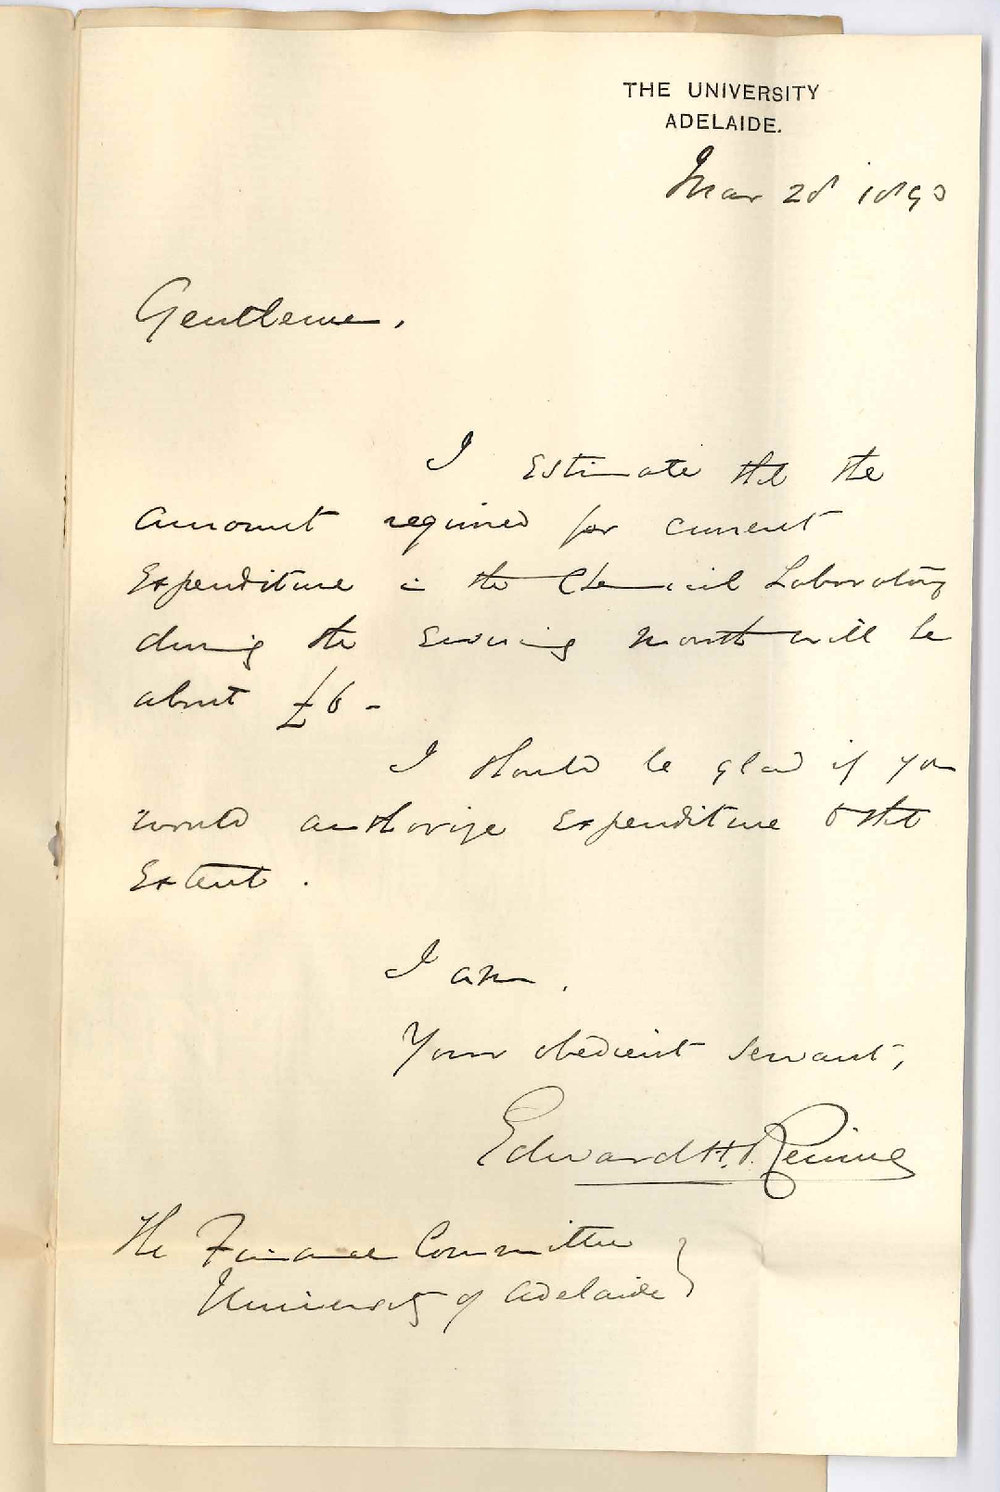 THE UNIVERSITY
ADELAIDE.
Mar 28 1890
Gentlemen,
I estimate that the
amount required for current
Expenditure in the Chemical Laboratory
during the ensuing month will be
about £6 -
I should be glad if you
would authorize expenditure to that
Extent.
I am,
Your obedient servant,
Edward H. Rennie
The Finance Committee
University of Adelaide